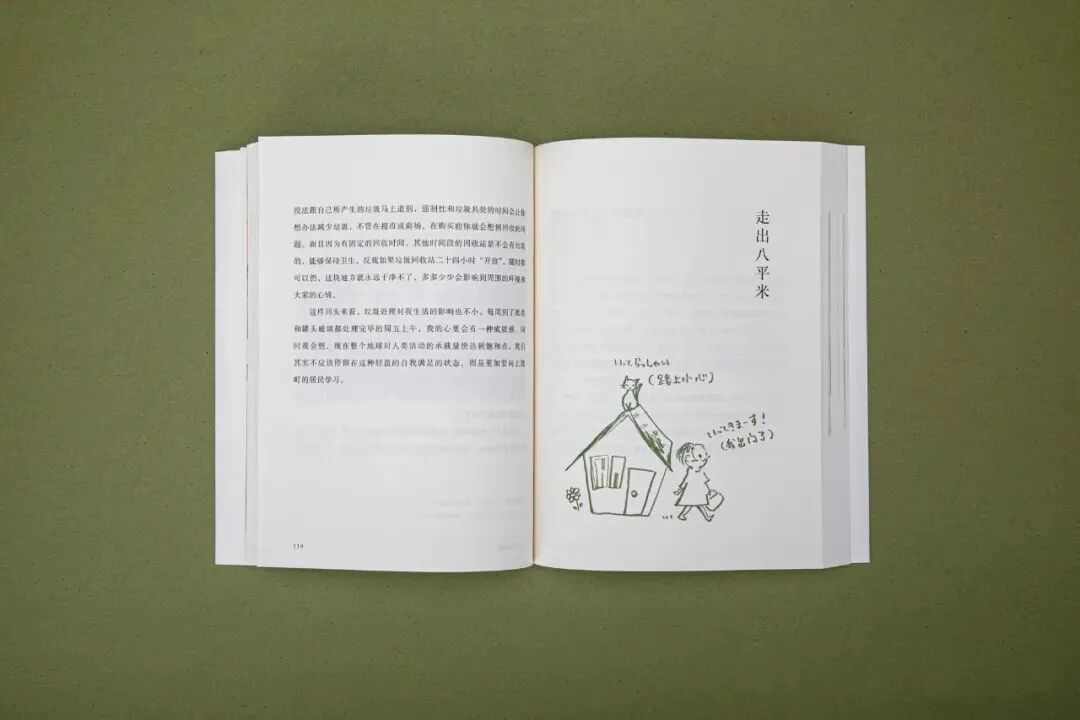 没法跟自己所产生的垃圾马上道别，强制性和垃圾共处的时间会让你
想办法减少垃圾，不管在超市或商场，在购买前你就会想到回收的问
题。而且因为有固定的回收时间，其他时间段的回收站是不会有垃圾
的，能够保持卫生，反观如果垃圾回收站二十四小时“开放”，随时都
可以扔，这块地方就永远干净不了，多多少少会影响到周围的环境和
大家的心情。
这样回头来看，垃圾处理对我生活的影响也不小。每周到了纸类
和罐头玻璃都处理完毕的周五上午，我的心里会有一种成就感。同
时我会想，现在整个地球对人类活动的承载量快达到饱和点，我们
其实不应该停留在这种轻盈的自我满足的状态，而是更加要向上胜
町的居民学习。
114
走出八平米
いってらっしゃい
（路上小心）
いってきまーす！
（我出门了）